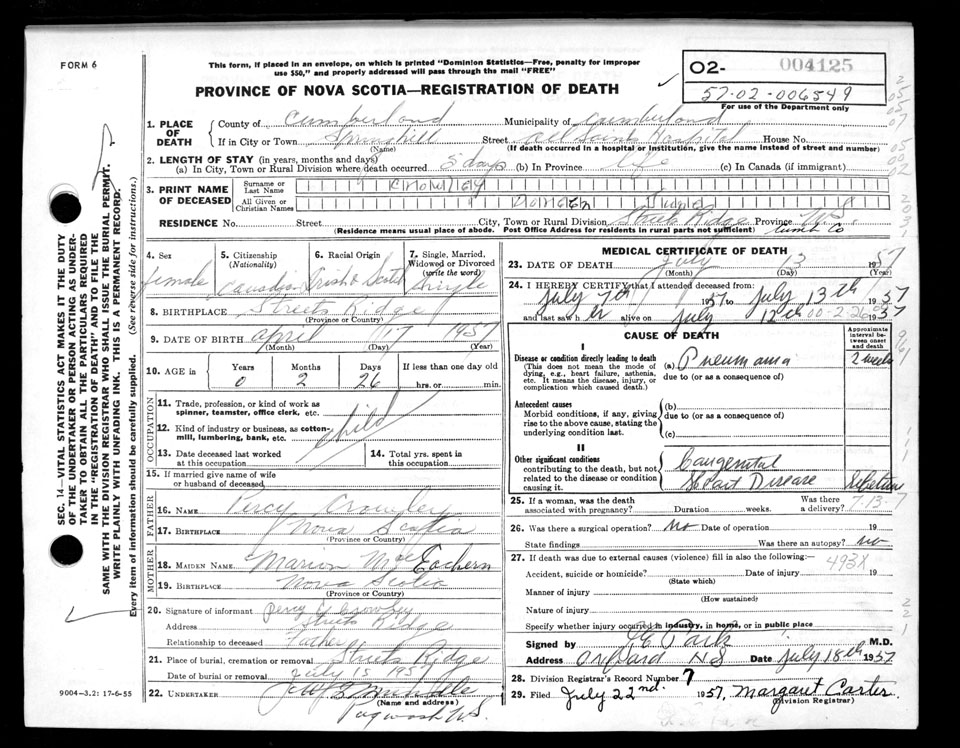 FORM 6
This form, if placed in an envelope, on which is printed "Dominion Statistics—Free, penalty for improper
use $50," and properly addressed will pass through the mail "FREE"
PROVINCE OF NOVA SCOTIA—REGISTRATION OF DEATH
02- 004125
57-02-006549
For use of the Department only
1. PLACE OF DEATH
County of Cumberland Municipality of Cumberland
If in City or Town Springhill Street All Saints Hospital House No.
(Name) (If death occurred in a hospital or institution, give the name instead of street and number)
2. LENGTH OF STAY (in years, months and days)
(a) In City, Town or Rural Division where death occurred 5 days (b) In Province life (c) In Canada (if immigrant)
3. PRINT NAME OF DECEASED
Surname or Last Name Crowley
All Given or Christian Names June
RESIDENCE No. Street City, Town or Rural Division Streets Ridge Province N.S.
(Residence means usual place of abode. Post Office Address for residents in rural parts not sufficient) Cumb Co
4. Sex female
5. Citizenship (Nationality) Canadian
6. Racial Origin Irish & Scotch
7. Single, Married, Widowed or Divorced (write the word) Single
8. BIRTHPLACE Streets Ridge
(Province or Country)
9. DATE OF BIRTH April 17 1957
(Month) (Day) (Year)
10. AGE in Years Months Days If less than one day old
0 2 26 hrs. or min.
OCCUPATION
11. Trade, profession, or kind of work as
spinner, teamster, office clerk, etc.
child
12. Kind of industry or business, as cotton-
mill, lumbering, bank, etc.
13. Date deceased last worked
at this occupation
14. Total yrs. spent in
this occupation
15. If married give name of wife
or husband of deceased
FATHER
16. NAME Percy Crowley
17. BIRTHPLACE Nova Scotia
(Province or Country)
MOTHER
18. MAIDEN NAME Marion Mac Eachern
19. BIRTHPLACE Nova Scotia
(Province or Country)
20. Signature of informant Percy Crowley
Address Streets Ridge
Relationship to deceased Father
21. Place of burial, cremation or removal Streets Ridge
Date of burial or removal July 15 195
22. UNDERTAKER
(Name and address)
Pugwash N.S.
9004-3.2: 17-6-55
SEC. 14—VITAL STATISTICS ACT MAKES IT THE DUTY
OF THE UNDERTAKER OR PERSON ACTING AS UNDER-
TAKER TO OBTAIN ALL THE PARTICULARS REQUIRED
IN THE "REGISTRATION OF DEATH" AND TO FILE THE
SAME WITH THE DIVISION REGISTRAR WHO SHALL ISSUE THE BURIAL PERMIT.
WRITE PLAINLY WITH UNFADING INK. THIS IS A PERMANENT RECORD.
Every item of information should be carefully supplied. (See reverse side for instructions.)
MEDICAL CERTIFICATE OF DEATH
23. DATE OF DEATH July 13 1957
(Month) (Day) (Year)
24. I HEREBY CERTIFY that I attended deceased from:
July 7th 1957 to July 13th 1957
and last saw her alive on July 12th 1957
CAUSE OF DEATH
Approximate interval between onset and death
I
Disease or condition directly leading to death
(This does not mean the mode of
dying, e.g., heart failure, asthenia,
etc. It means the disease, injury, or
complication which caused death.)
(a) Pneumonia 2 weeks
due to (or as a consequence of)
Antecedent causes
Morbid conditions, if any, giving
rise to the above cause, stating the
underlying condition last.
(b)
due to (or as a consequence of)
(c)
II
Other significant conditions
contributing to the death, but not
related to the disease or condition
causing it.
Congenital
Heart Disease
25. If a woman, was the death
associated with pregnancy? Duration weeks. Was there a delivery?
26. Was there a surgical operation? no Date of operation 19
State findings Was there an autopsy? no
27. If death was due to external causes (violence) fill in also the following:
493X
Accident, suicide or homicide? Date of injury 19
(State which)
Manner of injury
(How sustained)
Nature of injury
Specify whether injury occurred in industry, in home, or in public place
Signed by M.D.
Address Oxford NS Date July 18th 1957
28. Division Registrar's Record Number 7
29. Filed July 22nd 1957, Margaret Carter
(Division Registrar)